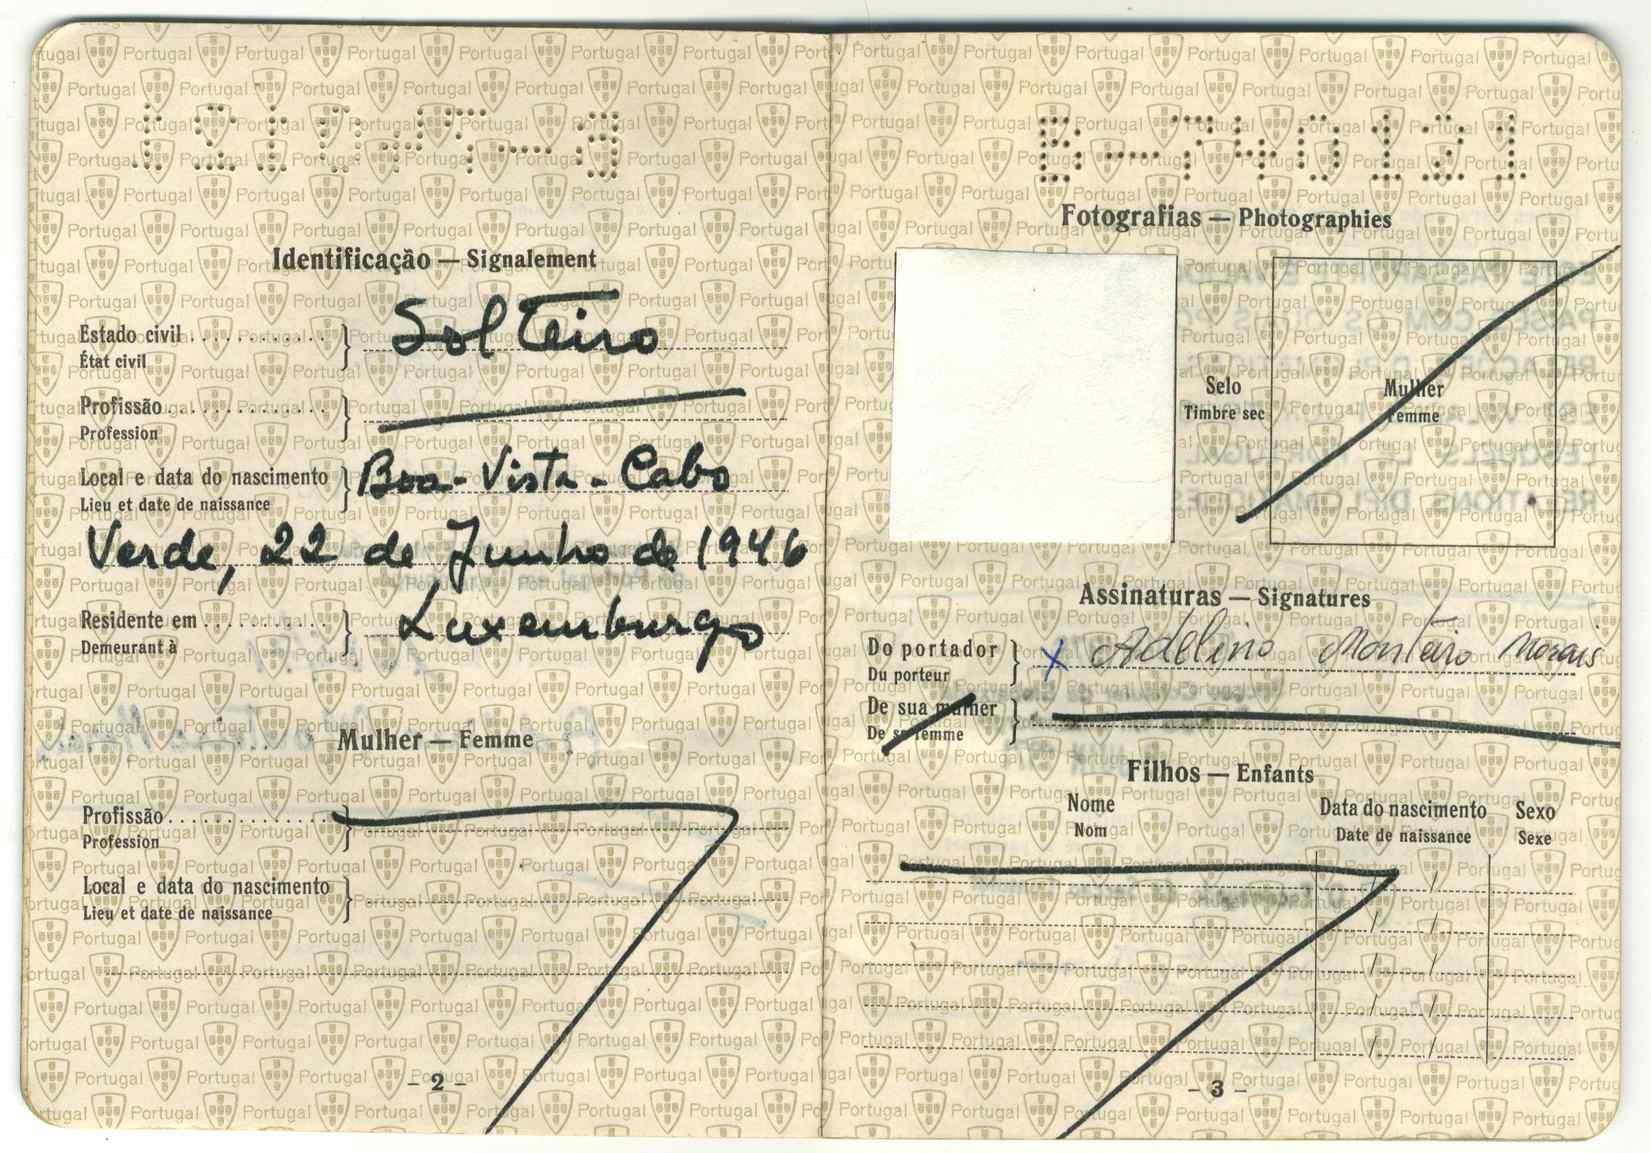 B-740131
Identificação — Signalement
Estado civil
État civil
Solteiro
Profissão
Profession
Local e data do nascimento
Lieu et date de naissance
Boa-Vista-Cabo
Verde, 22 de Junho de 1946
Residente em
Demeurant à
Luxemburgo
Mulher — Femme
Profissão
Profession
Local e data do nascimento
Lieu et date de naissance
- 2 -
B-740131
Fotografias — Photographies
Selo
Timbre sec
Mulher
Femme
Assinaturas — Signatures
Do portador
Du porteur
X Adelino Monteiro Morais
De sua mulher
De sa femme
Filhos — Enfants
Nome
Nom
Data do nascimento
Date de naissance
Sexo
Sexe
- 3 -